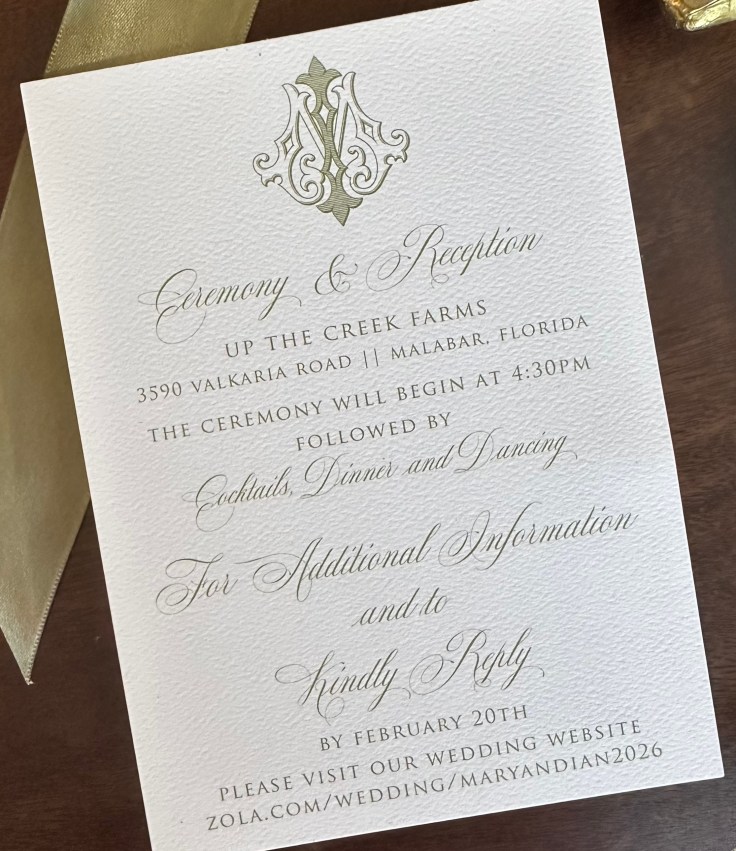 Ceremony & Reception
UP THE CREEK FARMS
3590 VALKARIA ROAD || MALABAR, FLORIDA
THE CEREMONY WILL BEGIN AT 4:30PM
FOLLOWED BY
Cocktails, Dinner and Dancing
For Additional Information
and to
Kindly Reply
BY FEBRUARY 20TH
PLEASE VISIT OUR WEDDING WEBSITE
ZOLA.COM/WEDDING/MARYANDIAN2026